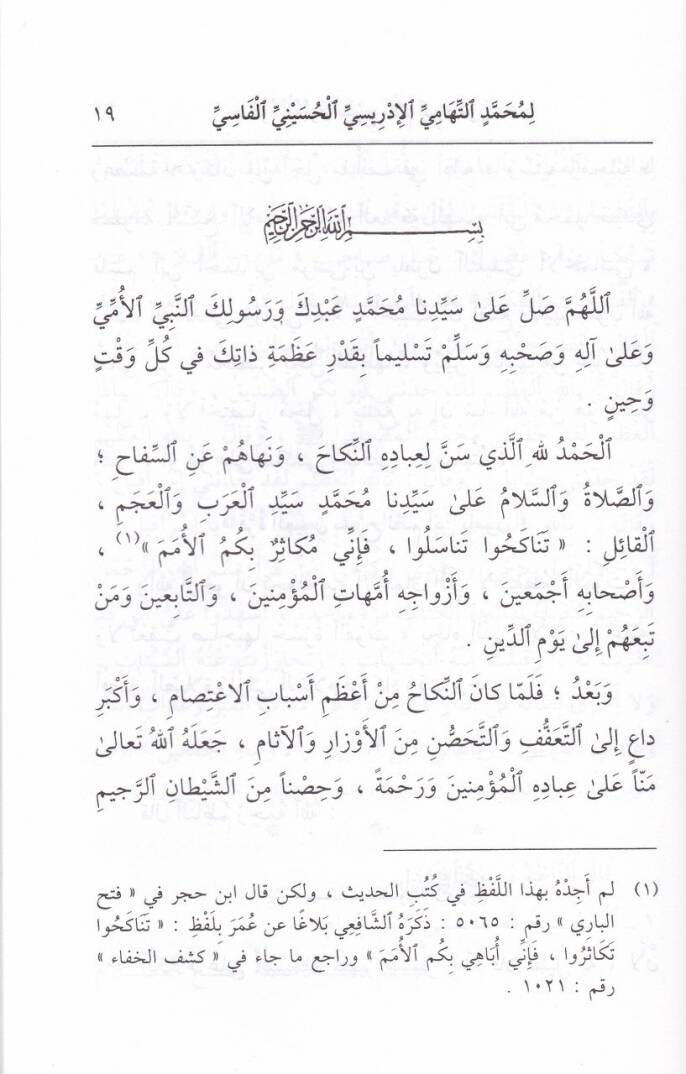 لِمُحَمَّدٍ ٱلتِّهَامِيِّ ٱلإِدْرِيسِيِّ ٱلْحُسَيْنِيِّ ٱلْفَاسِيِّ ١٩
بِسْمِ ٱللَّهِ ٱلرَّحْمَٰنِ ٱلرَّحِيمِ
ٱللَّهُمَّ صَلِّ عَلىٰ سَيِّدِنا مُحَمَّدٍ عَبْدِكَ وَرَسُولِكَ ٱلنَّبِيِّ ٱلأُمِّيِّ
وَعَلىٰ آلِهِ وَصَحْبِهِ وَسَلِّمْ تَسْلِيماً بِقَدْرِ عَظَمَةِ ذاتِكَ في كُلِّ وَقْتٍ
وَحِينٍ .
ٱلْحَمْدُ للهِ ٱلَّذي سَنَّ لِعِبادِهِ ٱلنِّكَاحَ ، وَنَهاهُمْ عَنِ ٱلسِّفاحِ ؛
وَٱلصَّلاةُ وَٱلسَّلامُ عَلىٰ سَيِّدِنا مُحَمَّدٍ سَيِّدِ ٱلْعَرَبِ وَٱلْعَجَمِ ،
ٱلْقائِلِ : « تَنَاكَحُوا تَناسَلُوا ، فَإِنِّي مُكاثِرٌ بِكُمُ ٱلأُمَمَ »(١) ،
وَأَصْحابِهِ أَجْمَعينَ ، وَأَزْواجِهِ أُمَّهاتِ ٱلْمُؤْمِنينَ ، وَٱلتَّابِعينَ وَمَنْ
تَبِعَهُمْ إِلىٰ يَوْمِ ٱلدِّينِ .
وَبَعْدُ ؛ فَلَمّا كانَ ٱلنِّكاحُ مِنْ أَعْظَمِ أَسْبابِ ٱلاعْتِصامِ ، وَأَكْبَرِ
داعٍ إِلىٰ ٱلتَّعَفُّفِ وَٱلتَّحَصُّنِ مِنَ ٱلأَوْزارِ وَٱلآثامِ ، جَعَلَهُ ٱللهُ تَعالىٰ
مَنّاً عَلىٰ عِبادِهِ ٱلْمُؤْمِنينَ وَرَحْمَةً ، وَحِصْناً مِنَ ٱلشَّيْطانِ ٱلرَّجيمِ
(١) لم أَجِدْهُ بهذا اللَّفْظِ في كُتُبِ الحديث ، ولكن قال ابن حجر في « فتح
الباري » رقم : ٥٠٦٥ : ذَكَرَهُ الشَّافِعي بَلاغًا عن عُمَرَ بِلَفْظِ : « تَنَاكَحُوا
تَكاثَرُوا ، فَإِنِّي أُباهِي بِكُم الأُمَمَ » وراجع ما جاء في « كشف الخفاء »
رقم : ١٠٢١ .